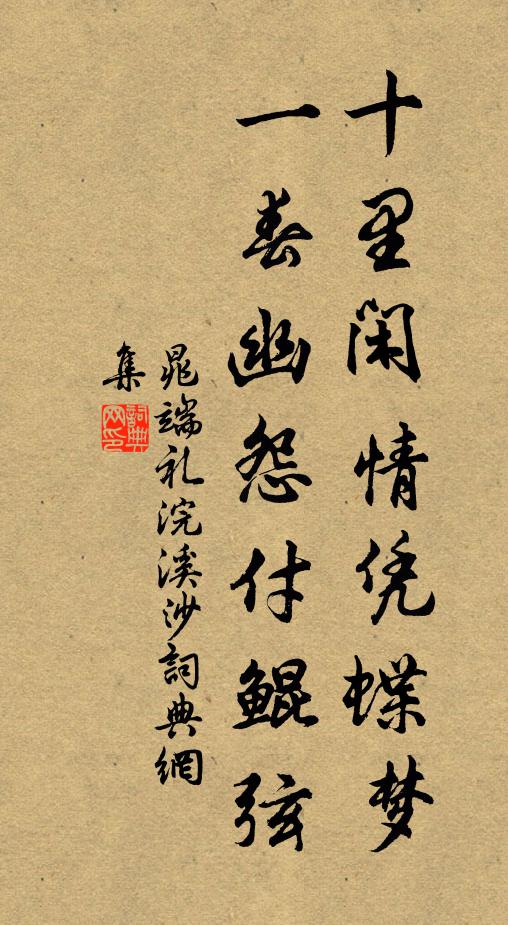 十里闲情凭蝶梦
一春幽怨付鲲弦
晁端礼浣溪沙詞典網
集
詞典网印